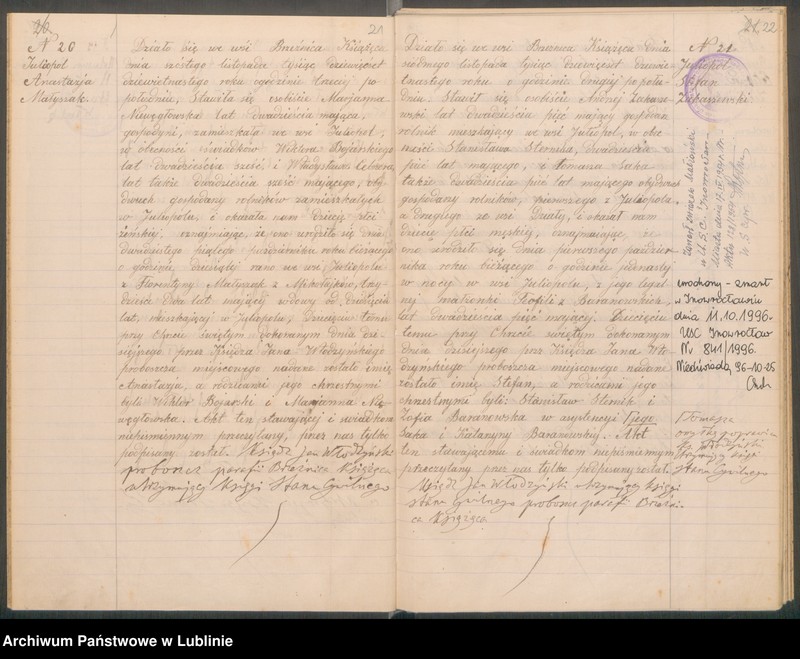 21
N 20
Juliopol
Anastazja
Matyszak.
Działo się we wsi Brzeźnica Książęca
dnia szóstego listopada tysiąc dziewięćset
dziewiętnastego roku o godzinie trzeciej po
południu, Stawiła się osobiście Marjanna
Niewęgłowska lat dwadzieścia mająca,
gospodyni, zamieszkała we wsi Juliopol,
w obecności świadków Wiktora Bojarskiego
lat dwadzieścia sześć, i Władysława
lat także dwadzieścia sześć mającego, oby-
dwuch gospodarzy rolników zamieszkałych
w Juliopolu, i okazała nam dziecię płci
żeńskiej, oznajmiając, że ono urodziło się dnia
dwudziestego piątego października roku bieżącego
o godzinie dziesiątej rano we wsi Juliopolu
z Florentyny Matyszak z Mikołajków, trzy-
dzieści dwa lat mającej wdowy od dziesięciu
lat, mieszkającej w Juliopolu, Dziecięciu temu
przy Chrzcie świętym dokonanym dnia dzi-
siejszego przez Księdza Jana Włodzyńskiego
proboszcza miejscowego nadane zostało imię
Anastazja, a rodzicami jego chrzestnymi
byli Wiktor Bojarski i Marjanna Nie-
węgłowska. Akt ten stawającej i świadkom
niepiśmiennym przeczytany, przez nas tylko
podpisany został. Ksiądz Jan Włodzyński
proboszcz parafii Brzeźnica Książęca
utrzymujący Księgi Stanu Cywilnego
22
N 21
Juliopol
Stefan
Zakaszewski
Działo się we wsi Brzeźnica Książęca dnia
siódmego listopada tysiąc dziewięćset dziewię-
tnastego roku o godzinie drugiej po połu-
dniu. Stawił się osobiście Andrzej Zakasze-
wski lat dwadzieścia pięć mający gospodarz
rolnik mieszkający we wsi Juliopol, w obe-
cności Stanisława Slomika, dwadzieścia
pięć lat mającego, i Tomasza Saka
także dwadzieścia pięć lat mającego obydwuch
gospodarzy rolników, pierwszego z Juliopola,
a drugiego ze wsi, i okazał nam
dziecię płci męzkiej, oznajmiając, że
ono urodziło się dnia pierwszego paździer-
nika roku bieżącego o godzinie jedenastej
w nocy we wsi Juliopolu, z jego legal-
nej małżonki Teofili z Baranowskich,
lat dwadzieścia pięć mającej. Dziecięciu
temu przy Chrzcie świętym dokonanym
dnia dzisiejszego przez Księdza Jana Wło-
dzyńskiego proboszcza miejscowego nadane
zostało imię Stefan, a rodzicami jego
chrzestnymi byli: Stanisław Slomik i
Zofia Baranowska w asystencji
Saka i Katarzyny Baranowskiej. Akt
ten stawającemu i świadkom niepiśmiennym
przeczytany przez nas tylko podpisany został.
Ksiądz Jan Włodzyński utrzymujący Księgi
Stanu Cywilnego proboszcz parafii Brzeźni-
ca Książęca
w U.S.C. Inowrocław
wrodzony - zmarł
w Inowrocławiu
dnia 11.10.1996.
USC Inowrocław
Nr 841/1996.
Niedźwiada, 96-10-25
Tomasza
Ks. Włodzyński
utrzymujący Księgi
Stanu Cywilnego
Archiwum Państwowe w Lublinie